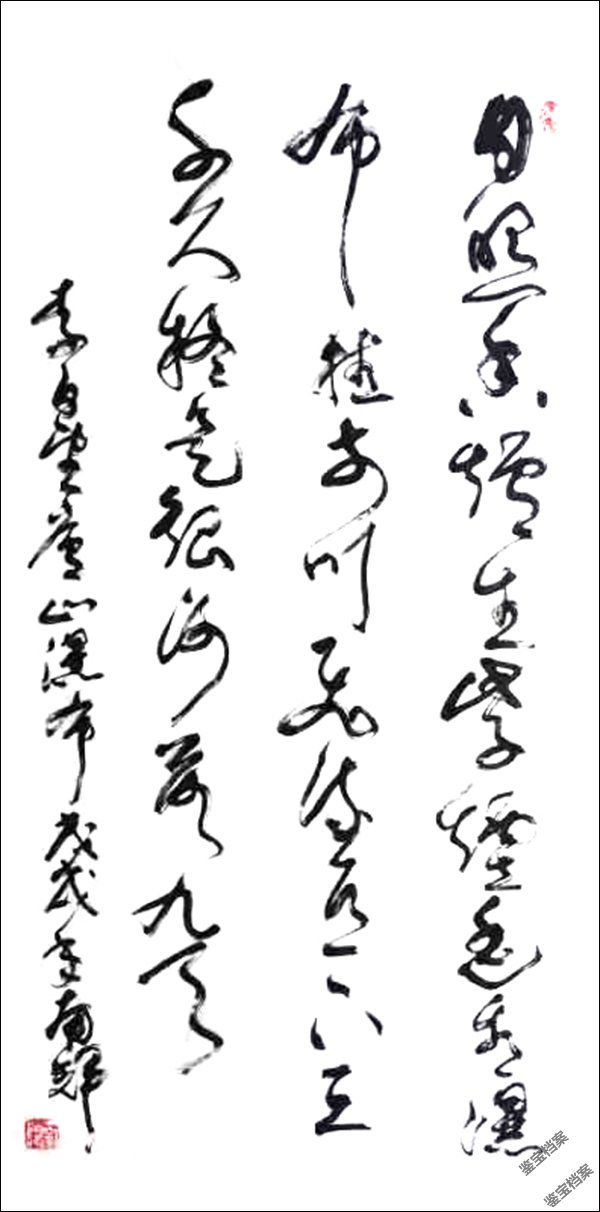 日照香爐生紫煙遙看瀑
布掛前川飛流直下三
千尺疑是銀河落九天
李白望廬山瀑布戊戌年南輝
鉴宝档案
鉴宝档案